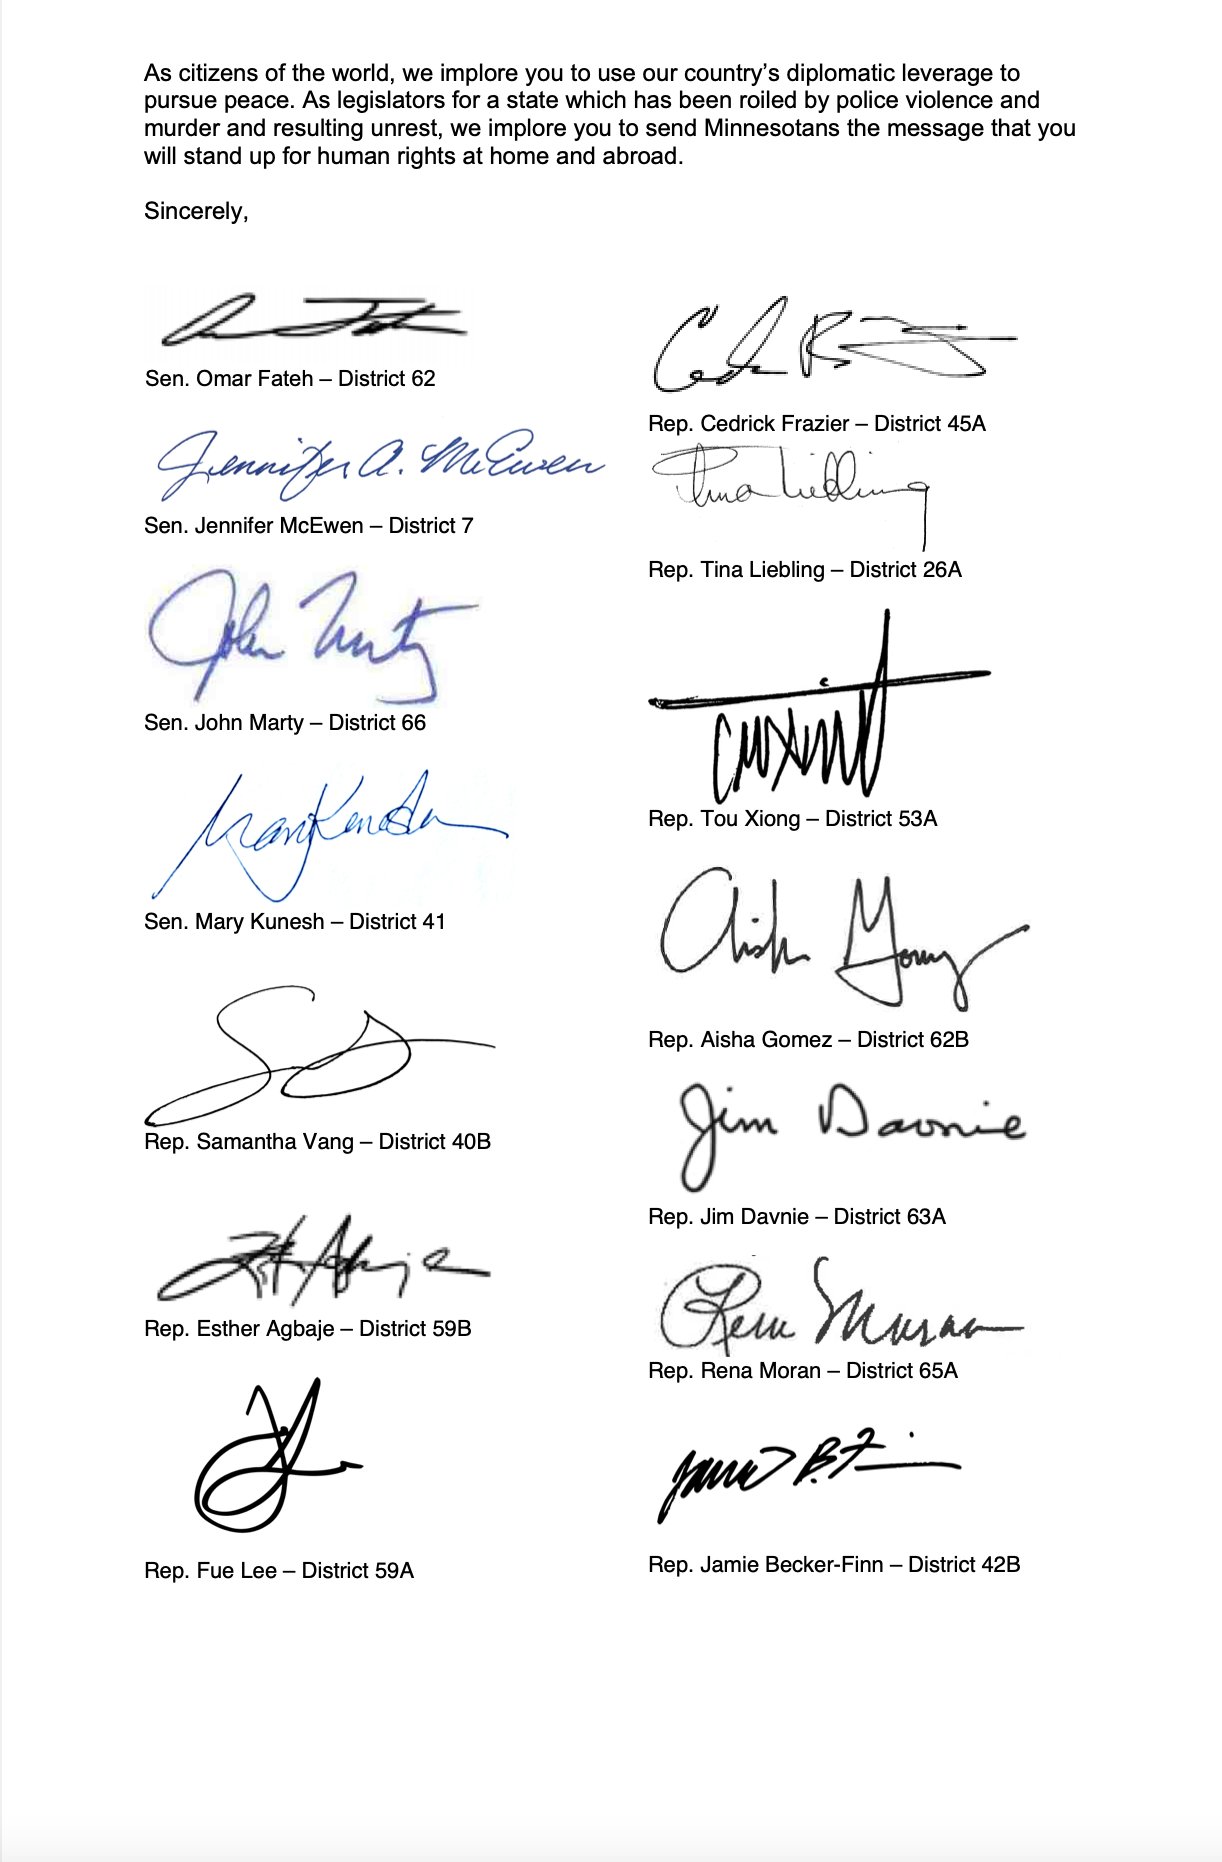 As citizens of the world, we implore you to use our country’s diplomatic leverage to
pursue peace. As legislators for a state which has been roiled by police violence and
murder and resulting unrest, we implore you to send Minnesotans the message that you
will stand up for human rights at home and abroad.
Sincerely,
Sen. Omar Fateh – District 62
Jennifer A. McEwen
Sen. Jennifer McEwen – District 7
John Marty
Sen. John Marty – District 66
Mary Kunesh
Sen. Mary Kunesh – District 41
Rep. Samantha Vang – District 40B
Rep. Esther Agbaje – District 59B
Rep. Fue Lee – District 59A
Rep. Cedrick Frazier – District 45A
Tina Liebling
Rep. Tina Liebling – District 26A
Rep. Tou Xiong – District 53A
Aisha Gomez
Rep. Aisha Gomez – District 62B
Jim Davnie
Rep. Jim Davnie – District 63A
Rena Moran
Rep. Rena Moran – District 65A
Rep. Jamie Becker-Finn – District 42B